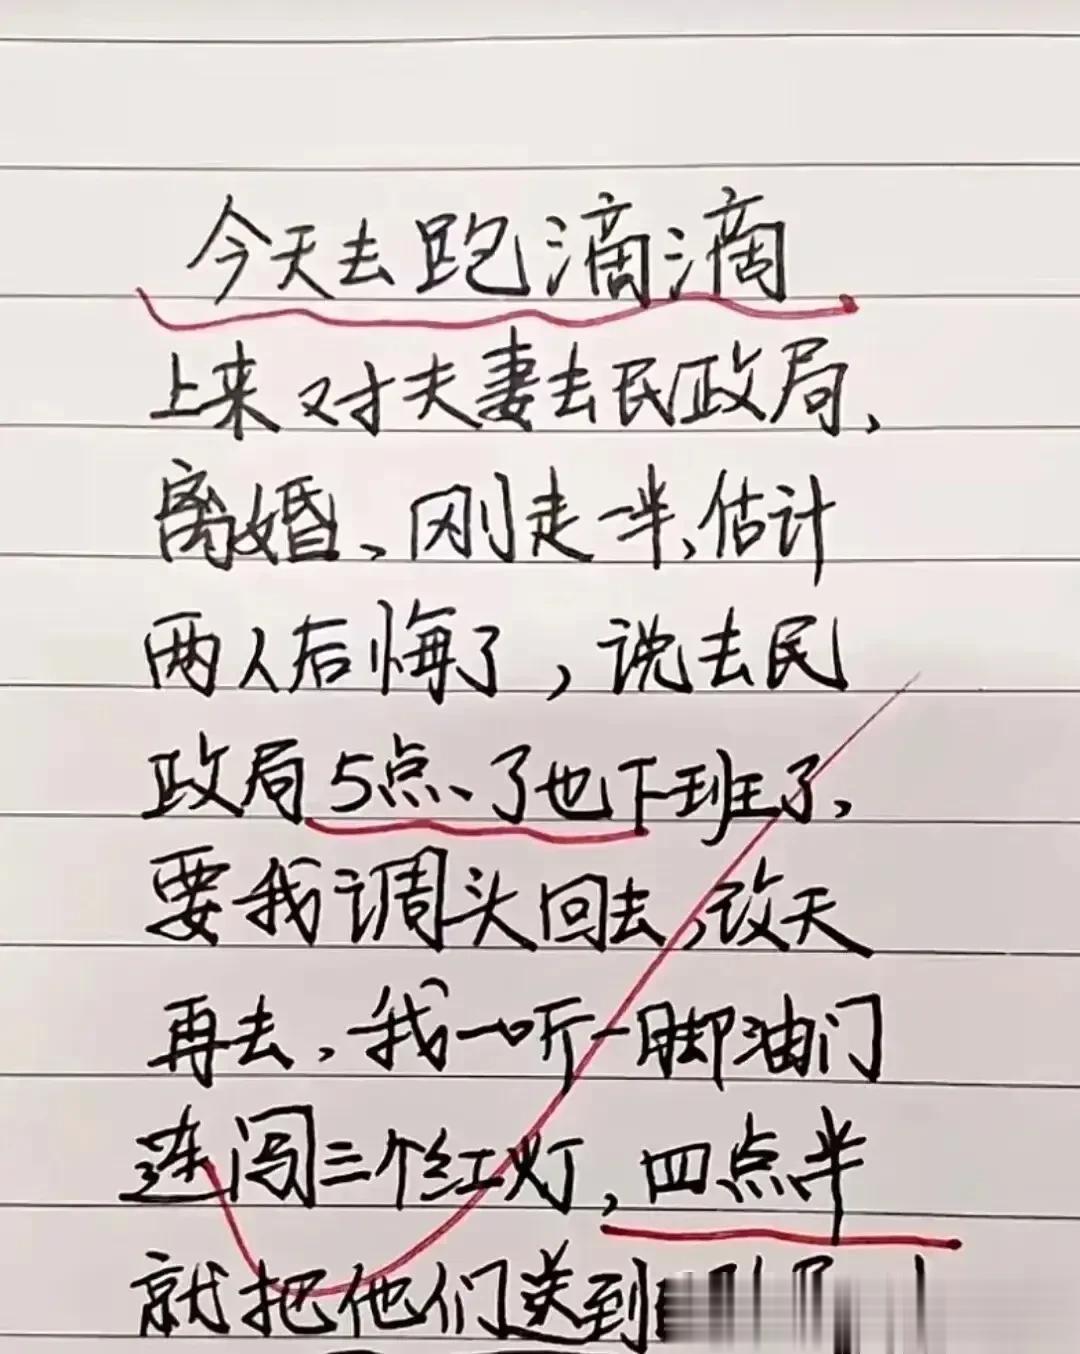 今天去跑滴滴
上来对夫妻去民政局、
离婚、刚走一半、估计
两人后悔了，说去民
政局5点、了也下班了，
要我调头回去，改天
再去，我一听一脚油门
连闯三个红灯，四点半
就把他们送到